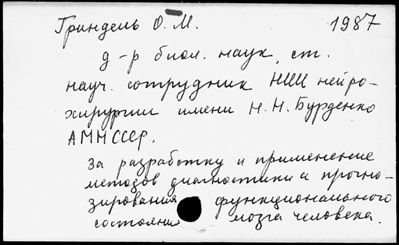 Гриндель О. М. 1987
д-р биол. наук, ст.
науч. сотрудник НИИ нейро-
хирургии имени Н. Н. Бурденко
АМН СССР.
За разработку и применение
методов диагностики и прогно-
зирования функционального
состояния мозга человека.